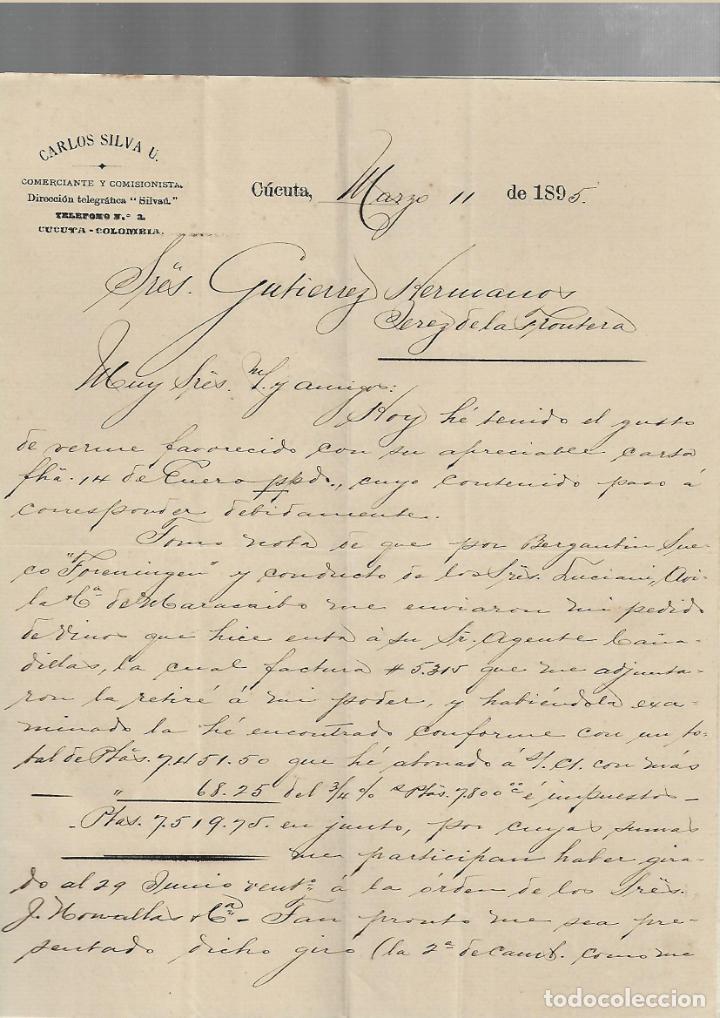 CARLOS SILVA U.
COMERCIANTE Y COMISIONISTA.
Dirección telegráfica "Silvaú."
TELEFONO N.º 2.
CUCUTA - COLOMBIA.
Cúcuta, Marzo 11 de 1895.
Srēs. Gutierrez Hermanos
Jerez de la Frontera
Muy Srēs. M. y amigos:
Hoy hé tenido el gusto
de verme favorecido con su apreciable carta
fhā. 14 de Enero ppdo., cuyo contenido paso á
corresponder debidamente.
Tomo nota de que por Bergantin Sue-
co "Foreningen" y conducto de los Srēs. Luciani, Avi-
la & Cª de Maracaibo me enviaron mi pedido
de vinos que hice á su Sr. Agente Caña-
dillas, la cual factura # 5.315 que me adjunta-
ron la retiré á mi poder, y habiéndola exa-
minado la hé encontrado conforme con un to-
tal de Ptās. 7.451.50 que hé abonado á s/ct. con más
— " 68.25 del ¾ % s Ptās. 7.800 é impuestos —
- Ptas. 7.519.75. en junto, por cuyas sumas
me participan haber gira-
do al 29 Junio á la órden de los Srēs.
J. & Cª - Tan pronto me sea pre-
sentado dicho giro (la 2ª de camb. como me
todocoleccion